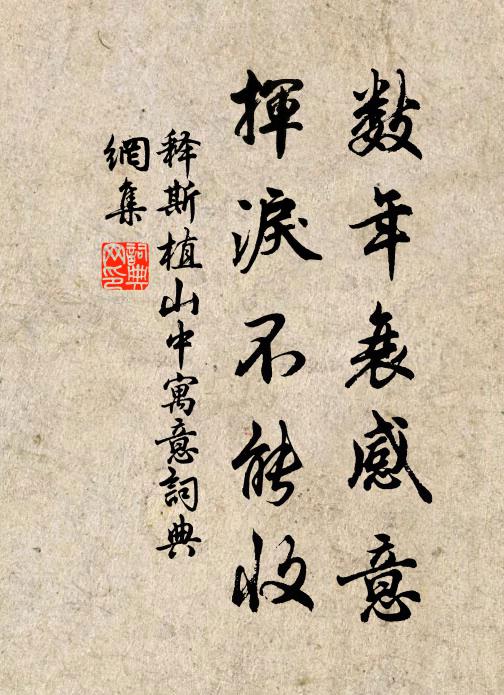 数年衰感意
揮淚不能收
释斯植山中寓意詞典
網集
詞典
网印